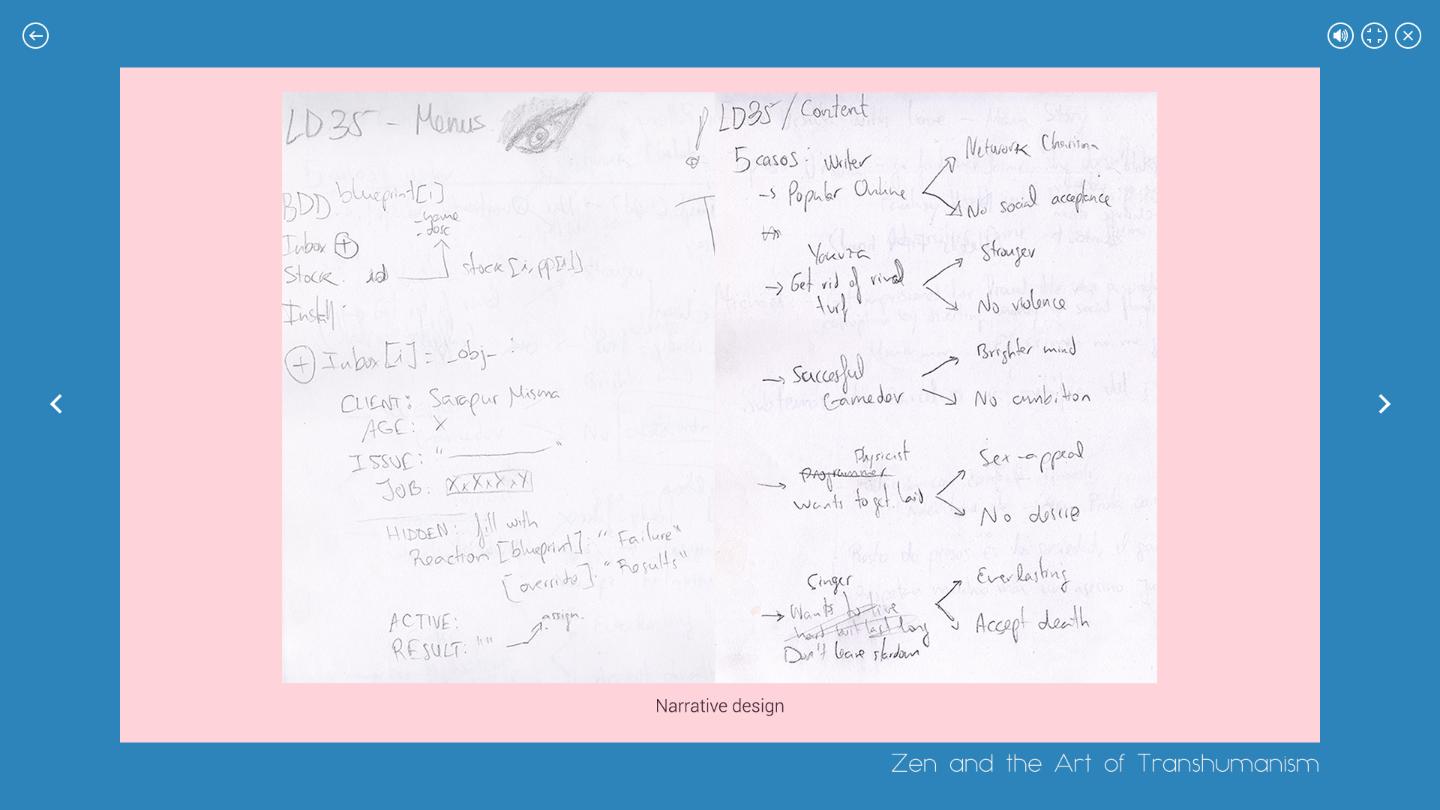 LD35 - Menus
BDD blueprint[i]
-name
-desc
Inbox +
Stock. id
stock[i, pp[i]]
Install:
+ Inbox[i] = _obj_ :
CLIENT: Sarapur Misma
AGE: X
ISSUE: "________"
JOB: XXXXXX
HIDDEN: fill with
Reaction [blueprint]: "Failure"
[override]: "Results"
ACTIVE:
RESULT: ""
assign.
LD35 / Content
5 casos: Writer
→ Popular Online
Network Charisma
No social acceptance
Yakuza
→ Get rid of rival
turf
Stronger
No violence
→ Succesful
Gamedev
Brighter mind
No ambition
Physicist
→ Programmer
wants to get laid
Sex-appeal
No desire
Singer
→ Wants to live
hard but last long
Don't leave stardom
Everlasting
Accept death
Narrative design
Zen and the Art of Transhumanism